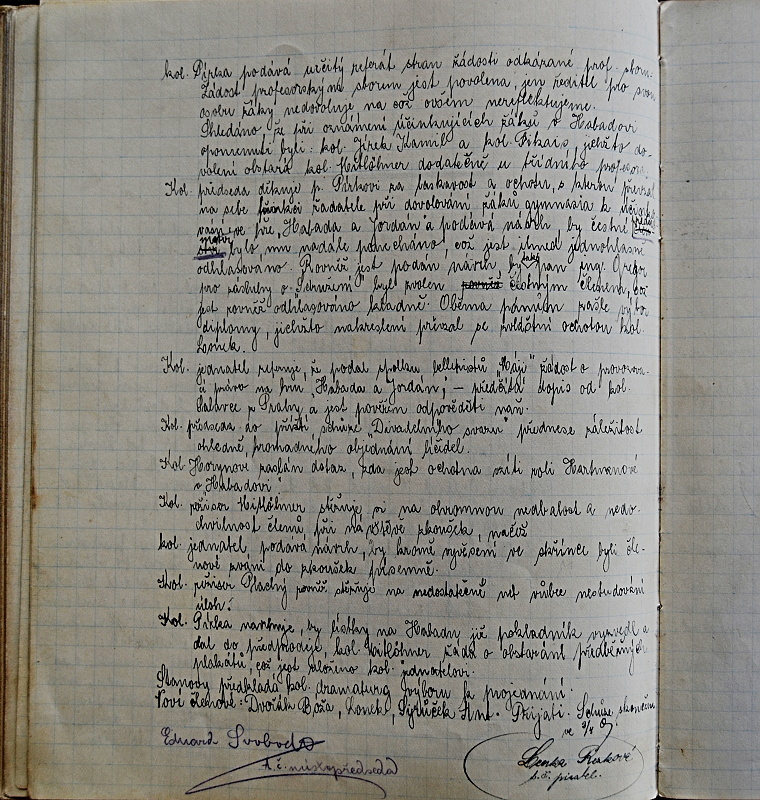 kol. Pírka podává určitý referát stran žádosti odkázané prof. sboru.
Žádost profesorským sborem jest povolena, jen ředitel pro svou
osobu žáky nedovoluje na což ovšem nereflektujeme.
Shledáno, že při oznámení účinkujících žáků v Habadovi
opomenuti byli: kol. Jírek Kamil a kol. jichžto do-
volení obstará kol. Hitlöhner dodatečně u třídního profesora.
Kol. předseda děkuje p. Pírkovi za laskavost a ochotu, s kterou převzal
na sebe funkci žadatele při dovolování žáků gymnasia k
ve hře „Habada a Jordán" a podává návrh, by čestné
bylo mu nadále ponecháno, což jest ihned jednohlasně
odhlasováno. Rovněž jest podán návrh, by také pan ing.
pro zásluhy o „Sdružení" byl zvolen čestným členem, což
jest rovněž odhlasováno kladně. Oběma pánům zašle výbor
diplomy, jichžto nakreslení převzal se zvláštní ochotou kol.
Lonek.
Kol. jednatel referuje, že podal spolku belletristů „Máji" žádost o provozova-
cí právo na hru „Habada a Jordán; – předčítá dopis od kol.
Salavce z Prahy a jest pověřen odpověděti naň.
Kol. předseda do příští schůze „Divadelního svazu" přednese záležitost
ohledně hromadného objednání líčidel.
Kol. Horynové zaslán dotaz, zda jest ochotna vzíti roli Hartmanové
v „Habadovi".
Kol. režisér Hitlöhner stěžuje si na ohromnou nedbalost a nedo-
chvilnost členů, při návštěvě zkoušek, načež
kol. jednatel, podává návrh, by kromě vyvěšení ve skřínce byli čle-
nové zváni do zkoušek písemně.
Kol. režisér Plachý rovněž stěžuje na nedostatečné neb vůbec nestudování
úloh.
Kol. Pírka navrhuje, by lístky na Habadu již pokladník vyzvedl a
dal do předprodeje, kol. Hitlöhner žádá o obstarání předběžných
plakátů, což jest uloženo kol. jednatelovi.
Stanovy předkládá kol. dramaturg výboru k projednání.
Noví členové: Dvořák Boža, Lonek, Syrůček Ant. Přijati. Schůze skončena
ve 3/4 8
Eduard Svoboda
t. č. místopředseda
Lenka
t. č. pisatel.